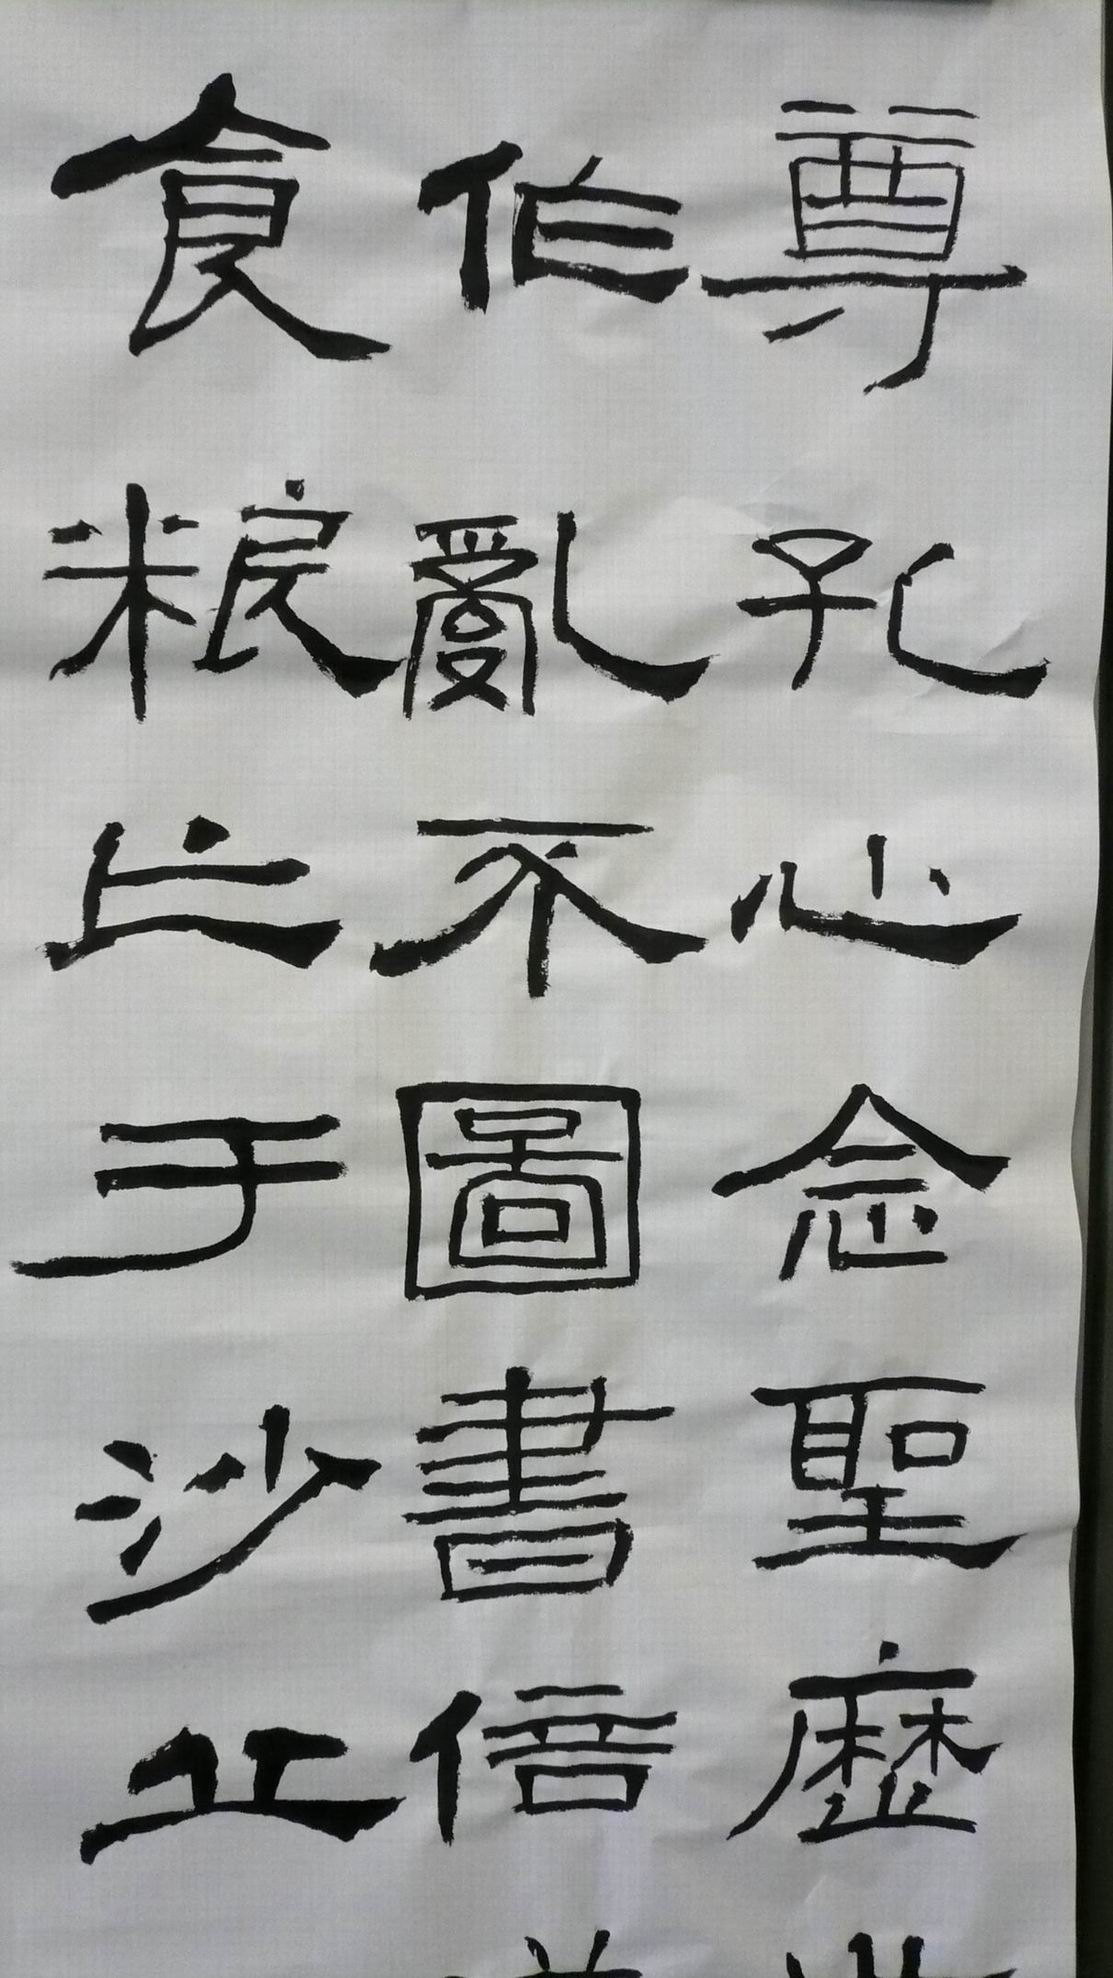 尊孔心念聖歷
作亂不圖書倍
食粮亡于沙丘